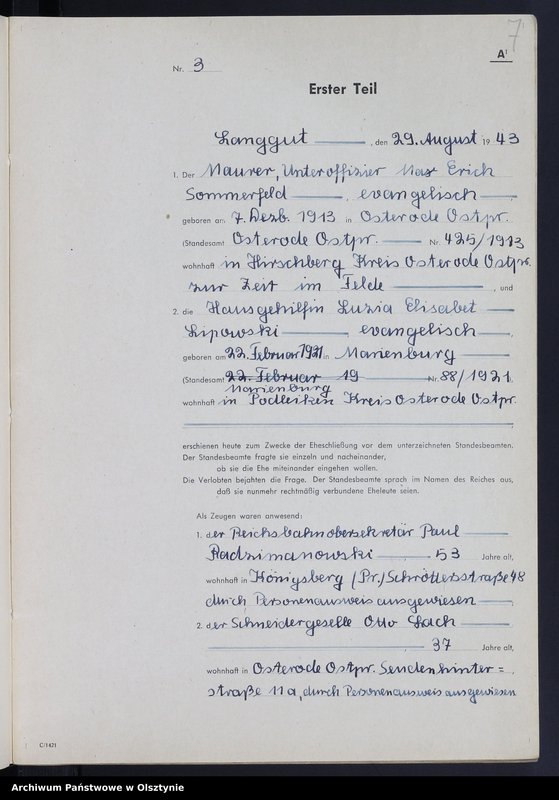 7
A¹
Nr. 3
Erster Teil
Langgut , den 29. August 1943
1. Der Maurer, Unteroffizier Max Erich
Sommerfeld , evangelisch ,
geboren am 7. Dezb. 1913 in Osterode Ostpr.
(Standesamt Osterode Ostpr. Nr. 425/1913
wohnhaft in Hirschberg Kreis Osterode Ostpr.
zur Zeit im Felde , und
2. die Hausgehilfin Luzia Elisabet
Lipowski evangelisch ,
geboren am 22. Februar 1921 in Marienburg
(Standesamt 22. Februar 19 Nr. 88/1921
Marienburg
wohnhaft in Podleiken Kreis Osterode Ostpr.
erschienen heute zum Zwecke der Eheschließung vor dem unterzeichneten Standesbeamten.
Der Standesbeamte fragte sie einzeln und nacheinander,
ob sie die Ehe miteinander eingehen wollen.
Die Verlobten bejahten die Frage. Der Standesbeamte sprach im Namen des Reiches aus,
daß sie nunmehr rechtmäßig verbundene Eheleute seien.
Als Zeugen waren anwesend:
1. der Reichsbahnobersekretär Paul
Radzimanowski , 53 Jahre alt,
wohnhaft in Königsberg (Pr.) Schrötterstraße 48
durch Personenausweis ausgewiesen ,
2. der Schneidergeselle Otto Lach
37 Jahre alt,
wohnhaft in Osterode Ostpr. Sendenhinter=
straße 11a, durch Personenausweis ausgewiesen
C/1421
Archiwum Państwowe w Olsztynie